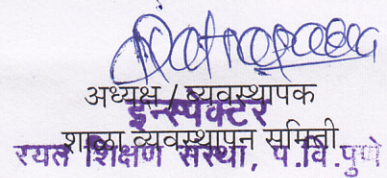 अध्यक्ष / व्यवस्थापक
इन्स्पेक्टर
शाळा व्यवस्थापन समिती
रयत शिक्षण संस्था, प.वि.पुणे